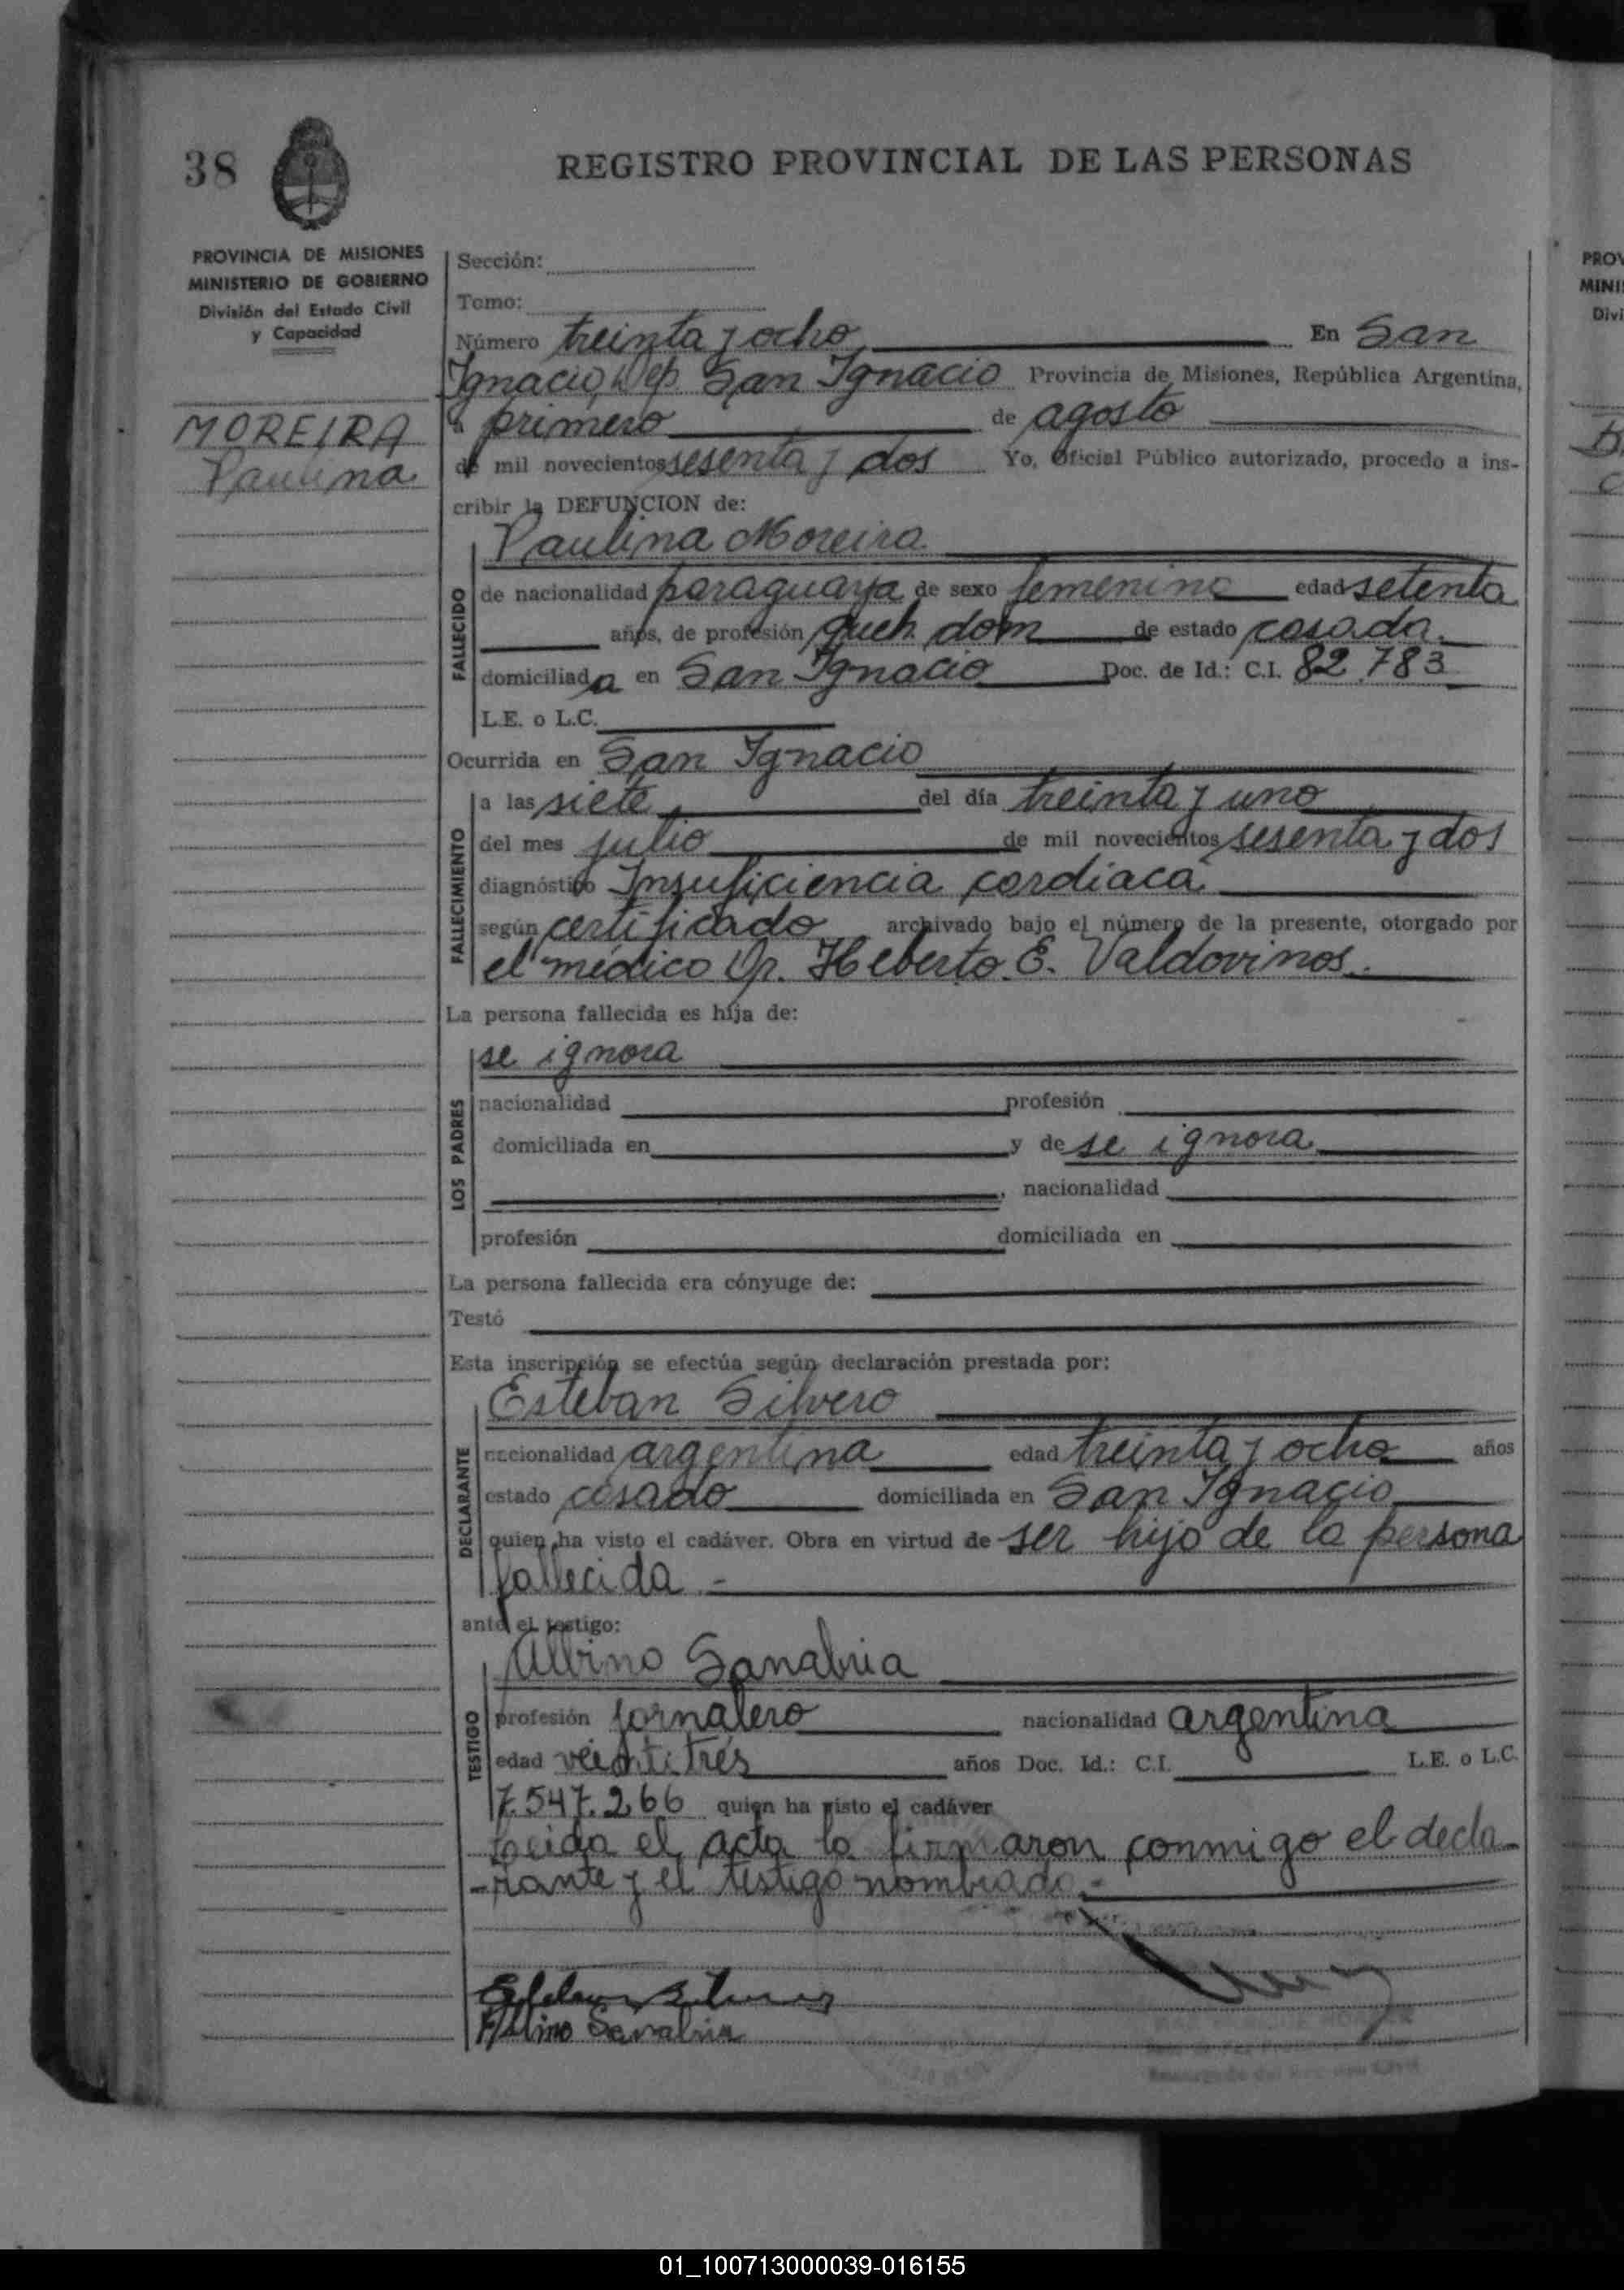 38
REGISTRO PROVINCIAL DE LAS PERSONAS
PROVINCIA DE MISIONES
MINISTERIO DE GOBIERNO
División del Estado Civil
y Capacidad
MOREIRA
Paulina
Sección:
Tomo:
Número treinta y ocho En San
Ignacio, Dep. San Ignacio Provincia de Misiones, República Argentina,
a primero de agosto
de mil novecientos sesenta y dos Yo, Oficial Público autorizado, procedo a ins-
cribir la DEFUNCION de:
Paulina Moreira
FALLECIDO
de nacionalidad paraguaya de sexo femenino edad setenta
años, de profesión queh. dom de estado casada.
domiciliada en San Ignacio Doc. de Id.: C.I. 82.783
L.E. o L.C.
Ocurrida en San Ignacio
FALLECIMIENTO
a las siete del día treinta y uno
del mes julio de mil novecientos sesenta y dos
diagnóstico Insuficiencia cardíaca
según certificado archivado bajo el número de la presente, otorgado por
el médico Dr. Heberto E. Valdovinos.
La persona fallecida es hija de:
LOS PADRES
se ignora
nacionalidad profesión
domiciliada en y de se ignora
, nacionalidad
profesión domiciliada en
La persona fallecida era cónyuge de:
Testó
Esta inscripción se efectúa según declaración prestada por:
DECLARANTE
Esteban Silvero
nacionalidad argentina edad treinta y ocho años
estado casado domiciliada en San Ignacio
quien ha visto el cadáver. Obra en virtud de ser hijo de la persona
fallecida.-
ante el testigo:
TESTIGO
Albino Sanabria
profesión jornalero nacionalidad argentina
edad veintitrés años Doc. Id.: C.I. L.E. o L.C.
7.547.266 quien ha visto el cadáver
Leida el acta la firmaron conmigo el decla-
-rante y el testigo nombrado.-
Esteban Silvero
Albino Sanabria
PROV
MINI
Divi
01_100713000039-016155